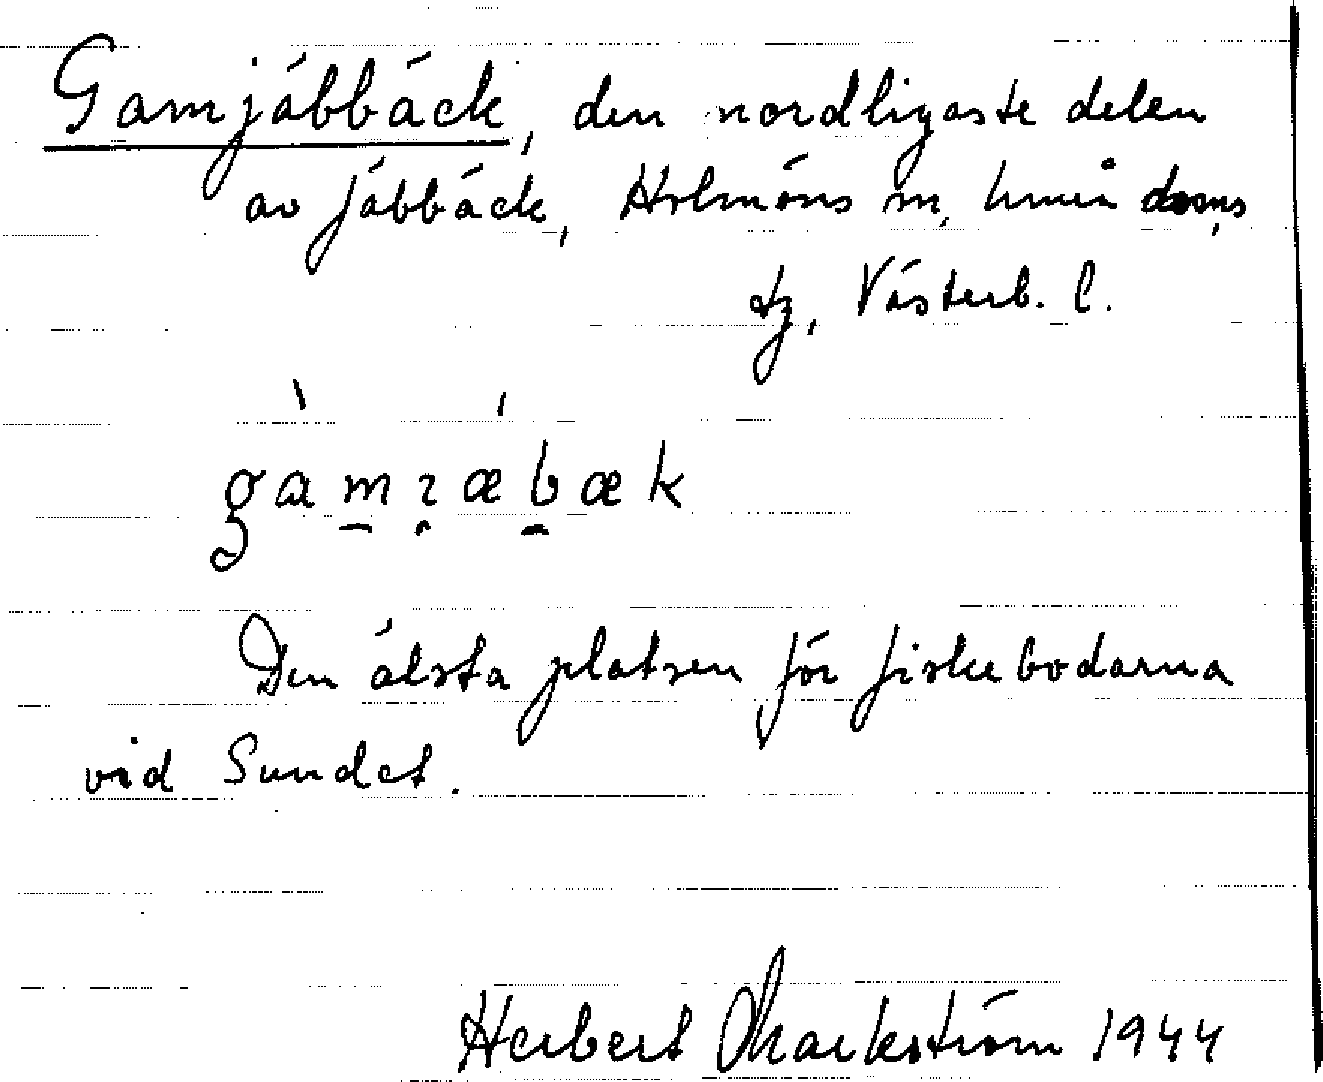 Gamjäbbäck, den nordligaste delen
av Jäbbäck, Holmöns sn, Umeå doms
tg, Västerb. l.
gàmɿæbæk
Den älsta platsen för fiskebodarna
vid Sundet.
Herbert Markström 1944